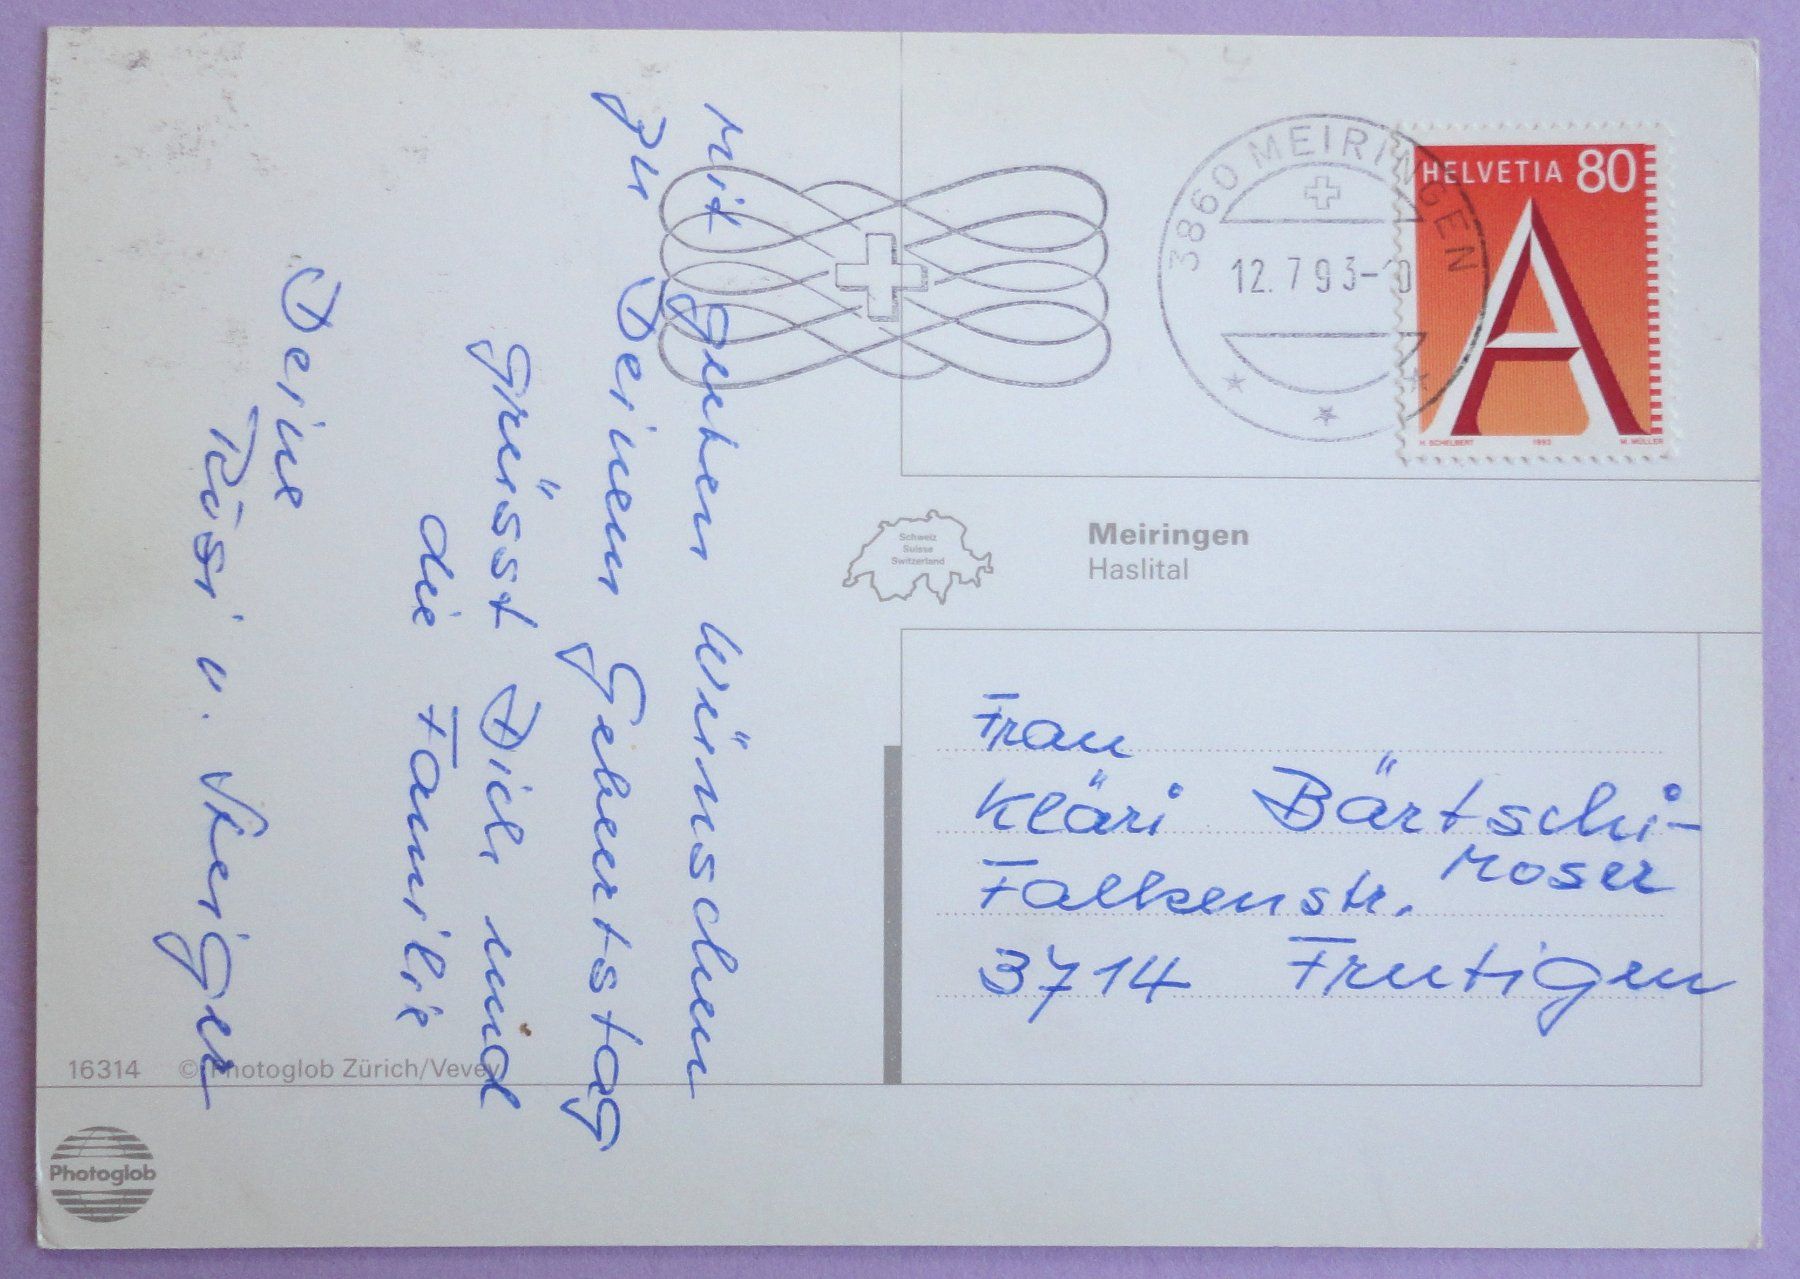 Mit guten Wünschen
zu Deinem Geburtstag
grüsst Dich und
die Familie
Deine
Rösi u. Steiger
3860 MEIRINGEN
12.7.93-
HELVETIA 80
A
H. SCHELBERT 1993 M. MÜLLER
Schweiz
Suisse
Switzerland
Meiringen
Haslital
Frau
Kläri Bärtschi-
Moser
Falkenstr.
3714 Frutigen
16314 © Photoglob Zürich/Vevey
Photoglob